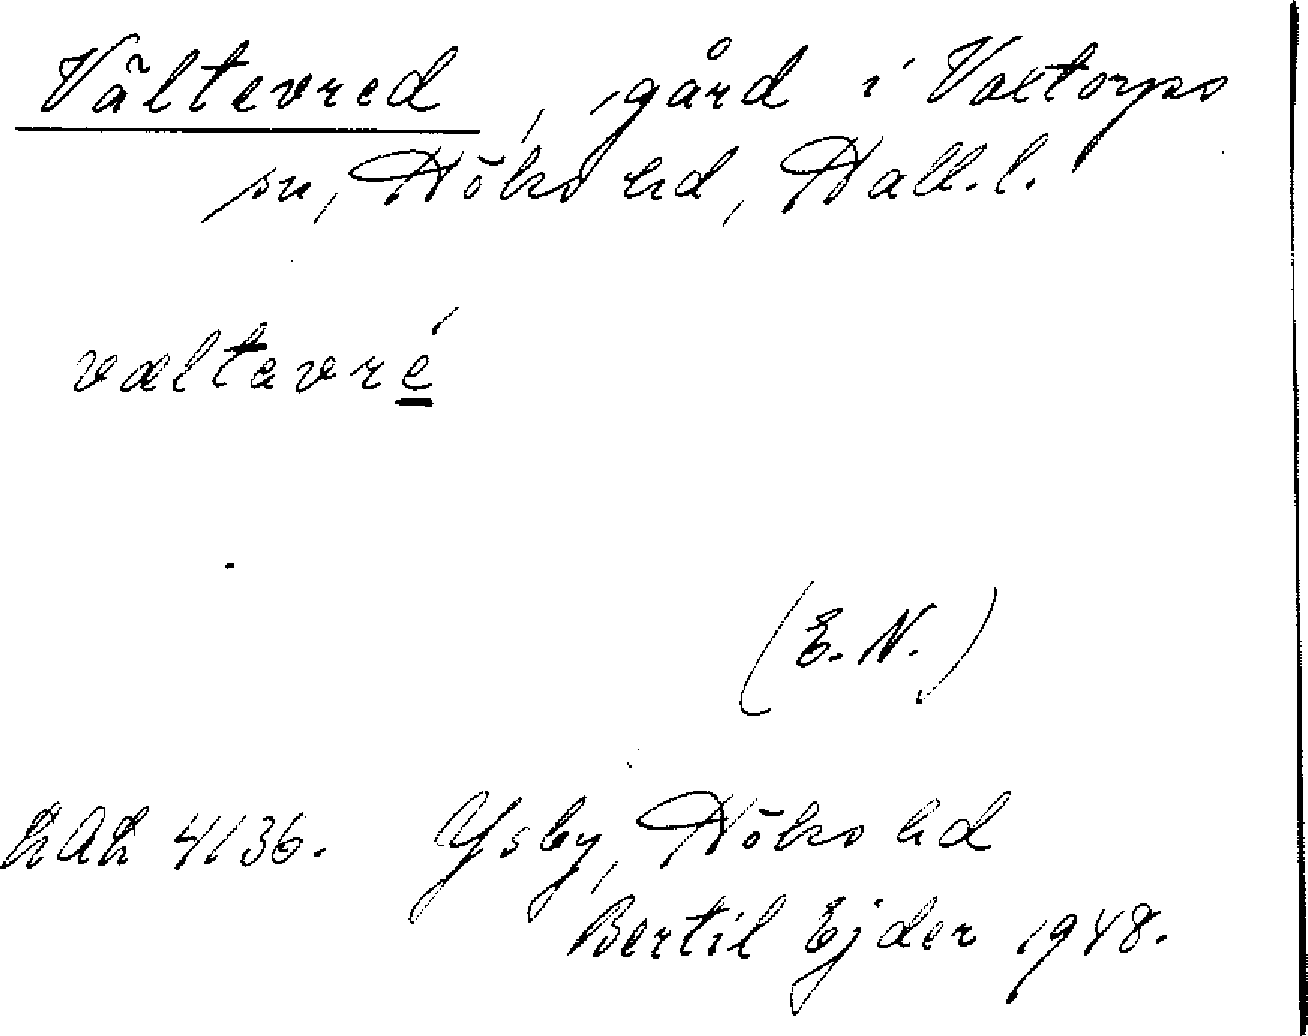 Vältevred, gård i Voxtorps
sn, Höks hd, Hall. l.
væltavré
(E. N.)
LAL 4136. Ysby, Höks hd
Bertil Ejder 1948.